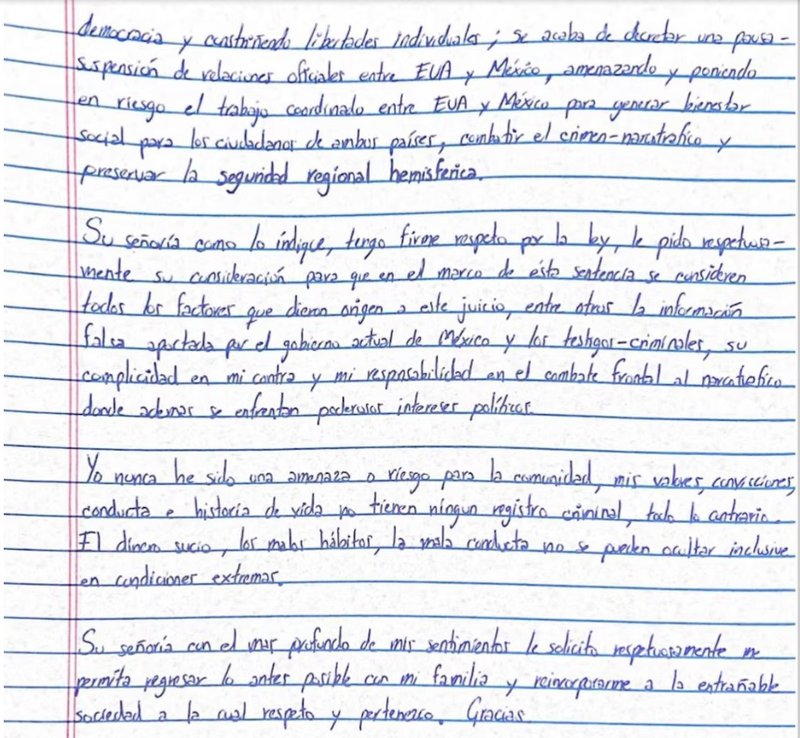 democracia y constriñendo libertades individuales; se acaba de decretar una pausa-
suspensión de relaciones oficiales entre EUA y México, amenazando y poniendo
en riesgo el trabajo coordinado entre EUA y México para generar bienestar
social para los ciudadanos de ambos países, combatir el crimen-narcotrafico y
preservar la seguridad regional hemisferica.
Su señoría como lo indique, tengo firme respeto por la ley, le pido respetuosa-
mente su consideración para que en el marco de ésta sentencia se consideren
todos los factores que dieron origen a este juicio, entre otros la información
falsa aportada por el gobierno actual de México y los testigos-criminales, su
complicidad en mi contra y mi responsabilidad en el combate frontal al narcotrafico
donde ademas se enfrentan poderosos intereses políticos.
Yo nunca he sido una amenaza o riesgo para la comunidad, mis valores, convicciones,
conducta e historia de vida no tienen ningun registro criminal, todo lo contrario.
El dinero sucio, los malos hábitos, la mala conducta no se pueden ocultar inclusive
en condiciones extremas.
Su señoría con el mas profundo de mis sentimientos le solicito respetuosamente me
permita regresar lo antes posible con mi familia y reincorporarme a la entrañable
sociedad a la cual respeto y pertenezco. Gracias